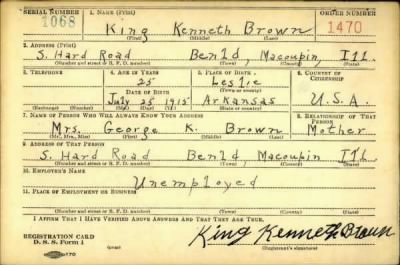 SERIAL NUMBER 1. NAME (Print) ORDER NUMBER
1068 King Kenneth Brown 1470
(First) (Middle) (Last)
2. ADDRESS (Print)
S. Hard Road Benld, Macoupin, Ill.
(Number and street or R. F. D. number) (Town) (County) (State)
3. TELEPHONE 4. AGE IN YEARS 5. PLACE OF BIRTH 6. COUNTRY OF CITIZENSHIP
25 Leslie
DATE OF BIRTH (Town or county)
July 25 1915 Arkansas U.S.A.
(Exchange) (Number) (Mo.) (Day) (Yr.) (State or country)
7. NAME OF PERSON WHO WILL ALWAYS KNOW YOUR ADDRESS 8. RELATIONSHIP OF THAT PERSON
Mrs. George K. Brown Mother
(Mr., Mrs., Miss) (First) (Middle) (Last)
9. ADDRESS OF THAT PERSON
S. Hard Road Benld, Macoupin Ill.
(Number and street or R. F. D. number) (Town) (County) (State)
10. EMPLOYER'S NAME
Unemployed
11. PLACE OF EMPLOYMENT OR BUSINESS
(Number and street or R. F. D. number) (Town) (County) (State)
I AFFIRM THAT I HAVE VERIFIED ABOVE ANSWERS AND THAT THEY ARE TRUE.
REGISTRATION CARD
D. S. S. Form 1
King Kenneth Brown
(Registrant's signature)